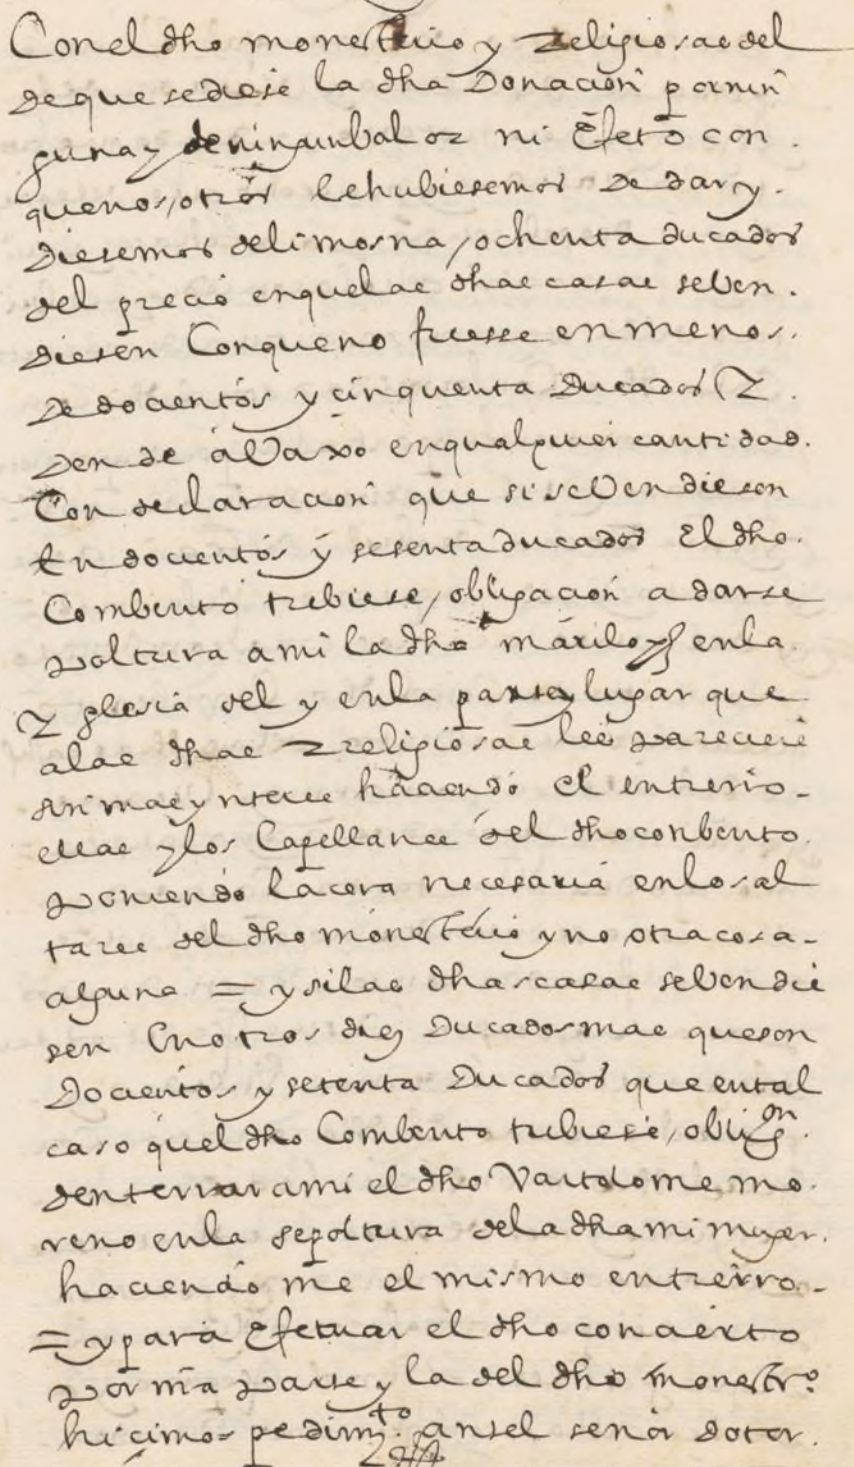 Con el dho monesterio y religiosas del
de que se diese la dha Donacion por nin
guna y de ningun balor ni Efeto con
que nosotros le hubiesemos de dar y
diesemos de limosna, ochenta ducados
del precio en que las dhas casas se ben
diesen Con que no fuesse en menos
de docientos y cinquenta Ducados y
dende abaxo en qualquier cantidad
Con declaracion que si se bendiesen
En docientos y sesenta ducados El dho
Combento tubiese, obligacion a dar se
poltura a mi la dha en la
yglesia del y en la parte y lugar que
a las dhas religiosas les pareciere
haciendo el entierro
ellas y los Capellanes del dho conbento
poniendo la cera necesaria en los al
tares del dho monesterio y no otra cosa
alguna = y si las dhas casas se bendie
sen En otros diez Ducados mas que son
Docientos y setenta Ducados que en tal
caso quel dho Combento tubiese, oblign
denterrar a mi el dho Vartolome mo
reno en la sepoltura de la dha mi muger
haciendo me el mismo entierro
= y para Efetuar el dho concierto
por mia parte y la del dho monestro
hicimos pedimto ansel señor dotor